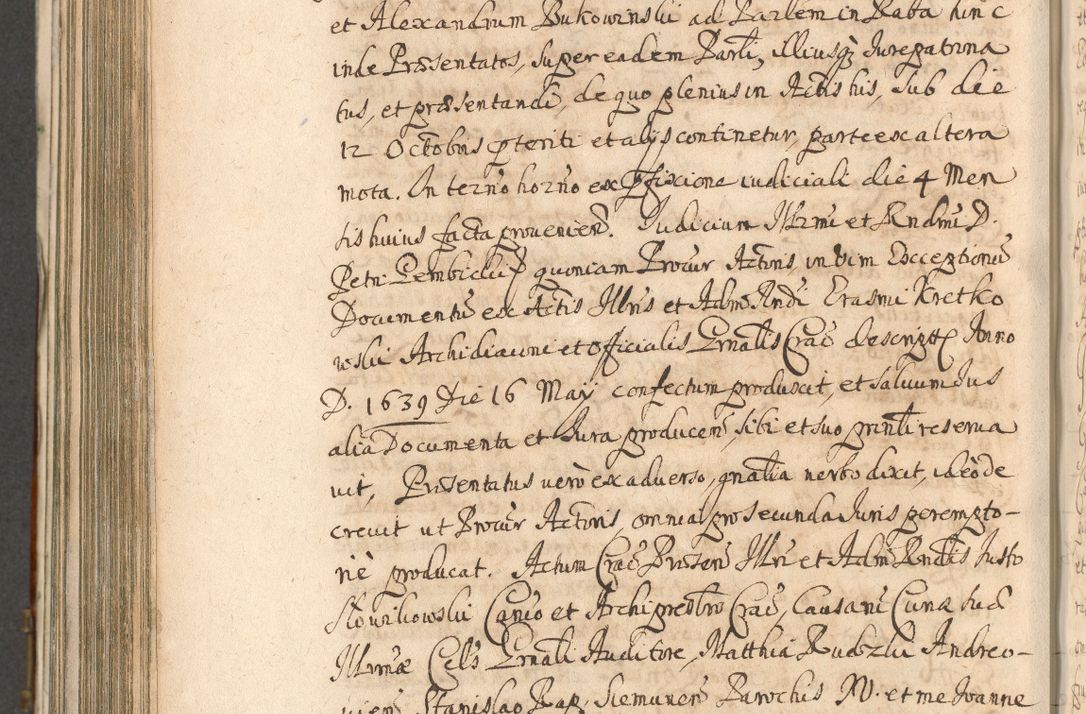 et Alexandrum Bukowinski ad Parlem in Raba hinc
inde Præsentatos, super eadem Parli, illiusq Jurepatrona
tus, et præsentandi, de quo plenius in Actis his, sub die
12 Octobris pteriti et alijs continetur, parte ex altera
mota. In termo horno ex pfixione iudiciali die 4 Men
sis huius facta provenien. Judicium Illrmi et Rndmi D.
Petri Gembicki quoniam Procur Actoris, in vim Exceptionu
Documentu ex Actis Illris et Adm Rndi Erasmi Kretko
wski Archidiaconi et Officialis Gnalis Crac descript Anno
D. 1639 Die 16 Maij confectum produxit, et salvum Jus
alia Documenta et Jura producen, sibi et suo prinli reserva
vit, Præsentatus vero ex adverso, gnalia verbo dixit, ideo de
crevit ut Procur Actoris, omnia pro secunda Juris perempto-
rie producat. Actum Crac Præsen Illri et Adm Rndis Justo
Słowikowski Canco et Archipresbro Crac, Causaru Curiæ sud
Illrmæ Cels Gnali Auditore, Matthia Rudzki Andreo-
vien Stanislao Rap, Siemunen Parochis XV. et me Joanne